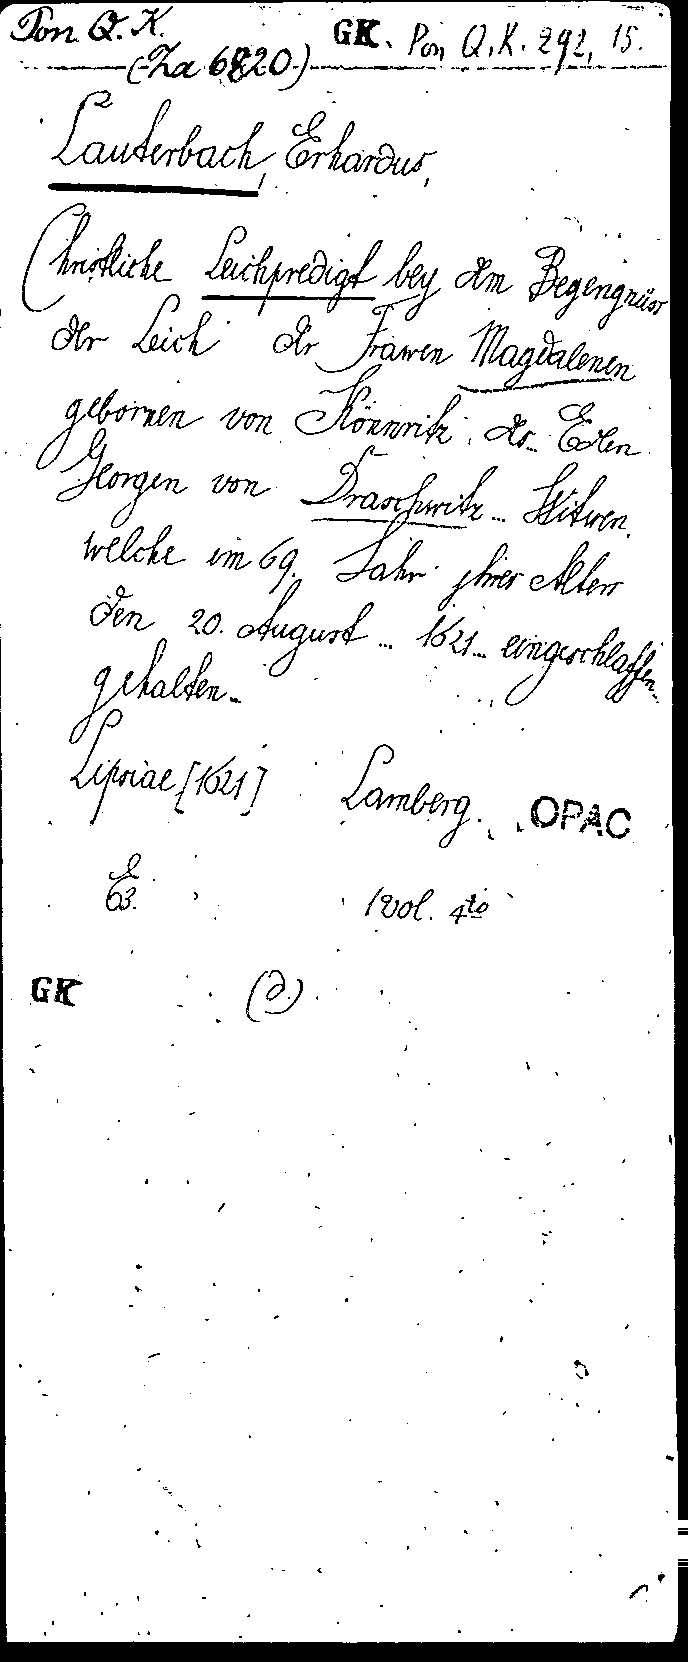 Pon. Q. K. GK. Pon Q. K. 292, 15.
(Za 6820)
Lauterbach, Erhardus,
Christliche Leichpredigt bey dem Begengnüss
der Leich der Frawen Magdalenen
gebornen von Könnritz, des.. Edlen
Georgen von Draschwitz... Witwen,
welche im 69. Jahr jhres Alters
den 20. August ... 1621... eingeschlaffen..
gehalten..
Lipsiae [1621] Lamberg. OPAC
E
63. 1 vol. 4to
GK (d.)